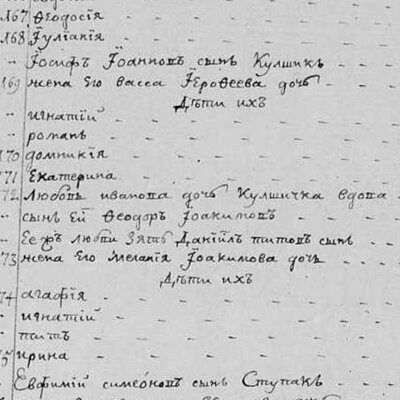 167 Ѳеодосія
168 Іуліанія
" Іосифъ Іоанновъ сынъ Кулшикъ
169 жена Его васса Іероѳеева дочь
Дѣти ихъ
" игнатій
" романъ
170 домникія
171 Екатерина
172 Любовь иванова дочь Кулшичка вдова
" сынъ Ей Ѳеодоръ Іоакимовъ
" Ее жъ любви Зять Даніилъ титовъ сынъ
73 жена Его меланія Іоакимова дочь
Дѣти ихъ
74 агафія
" игнатій
" титъ
75 ирина
Евфимій симеоновъ сынъ Ступакъ